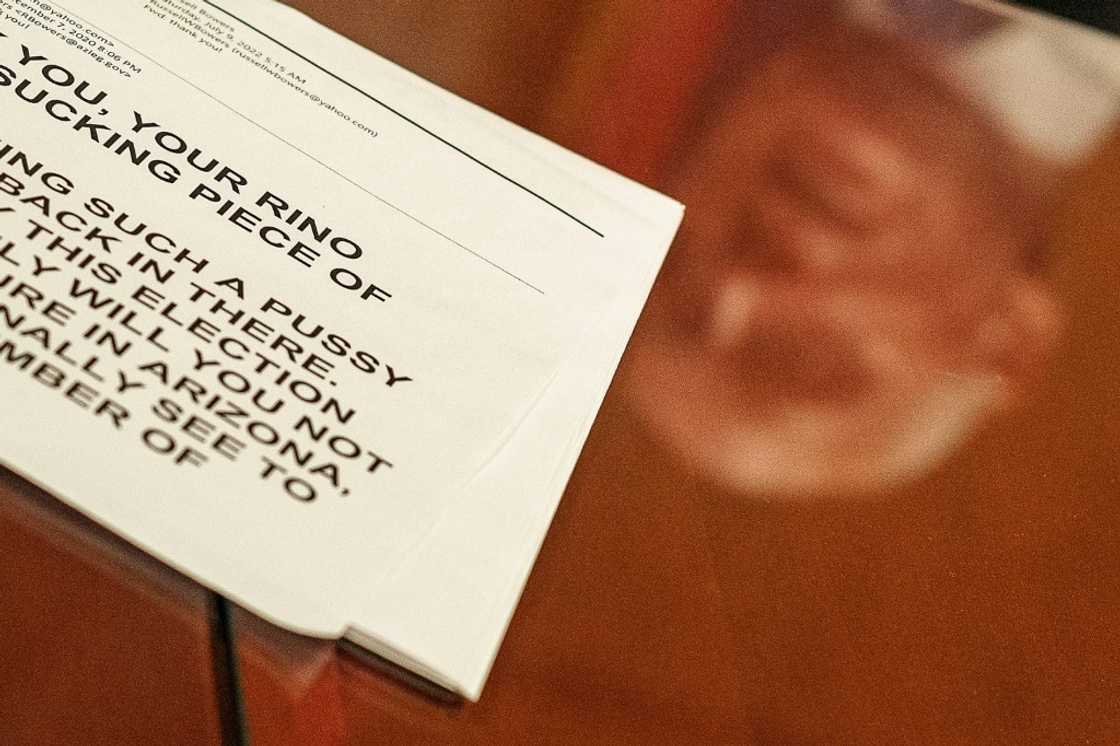 Russell Bowers
Saturday, July 9, 2022 5:15 AM
RussellWBowers (russellwbowers@yahoo.com)
Fwd: thank you!
@yahoo.com>
7, 2020 8:06 PM
<RBowers@azleg.gov>
you!
YOU, YOUR RINO
SUCKING PIECE OF
SUCH A PUSSY
BACK IN THERE.
THIS ELECTION
WILL YOU NOT
IN ARIZONA,
SEE TO
OF